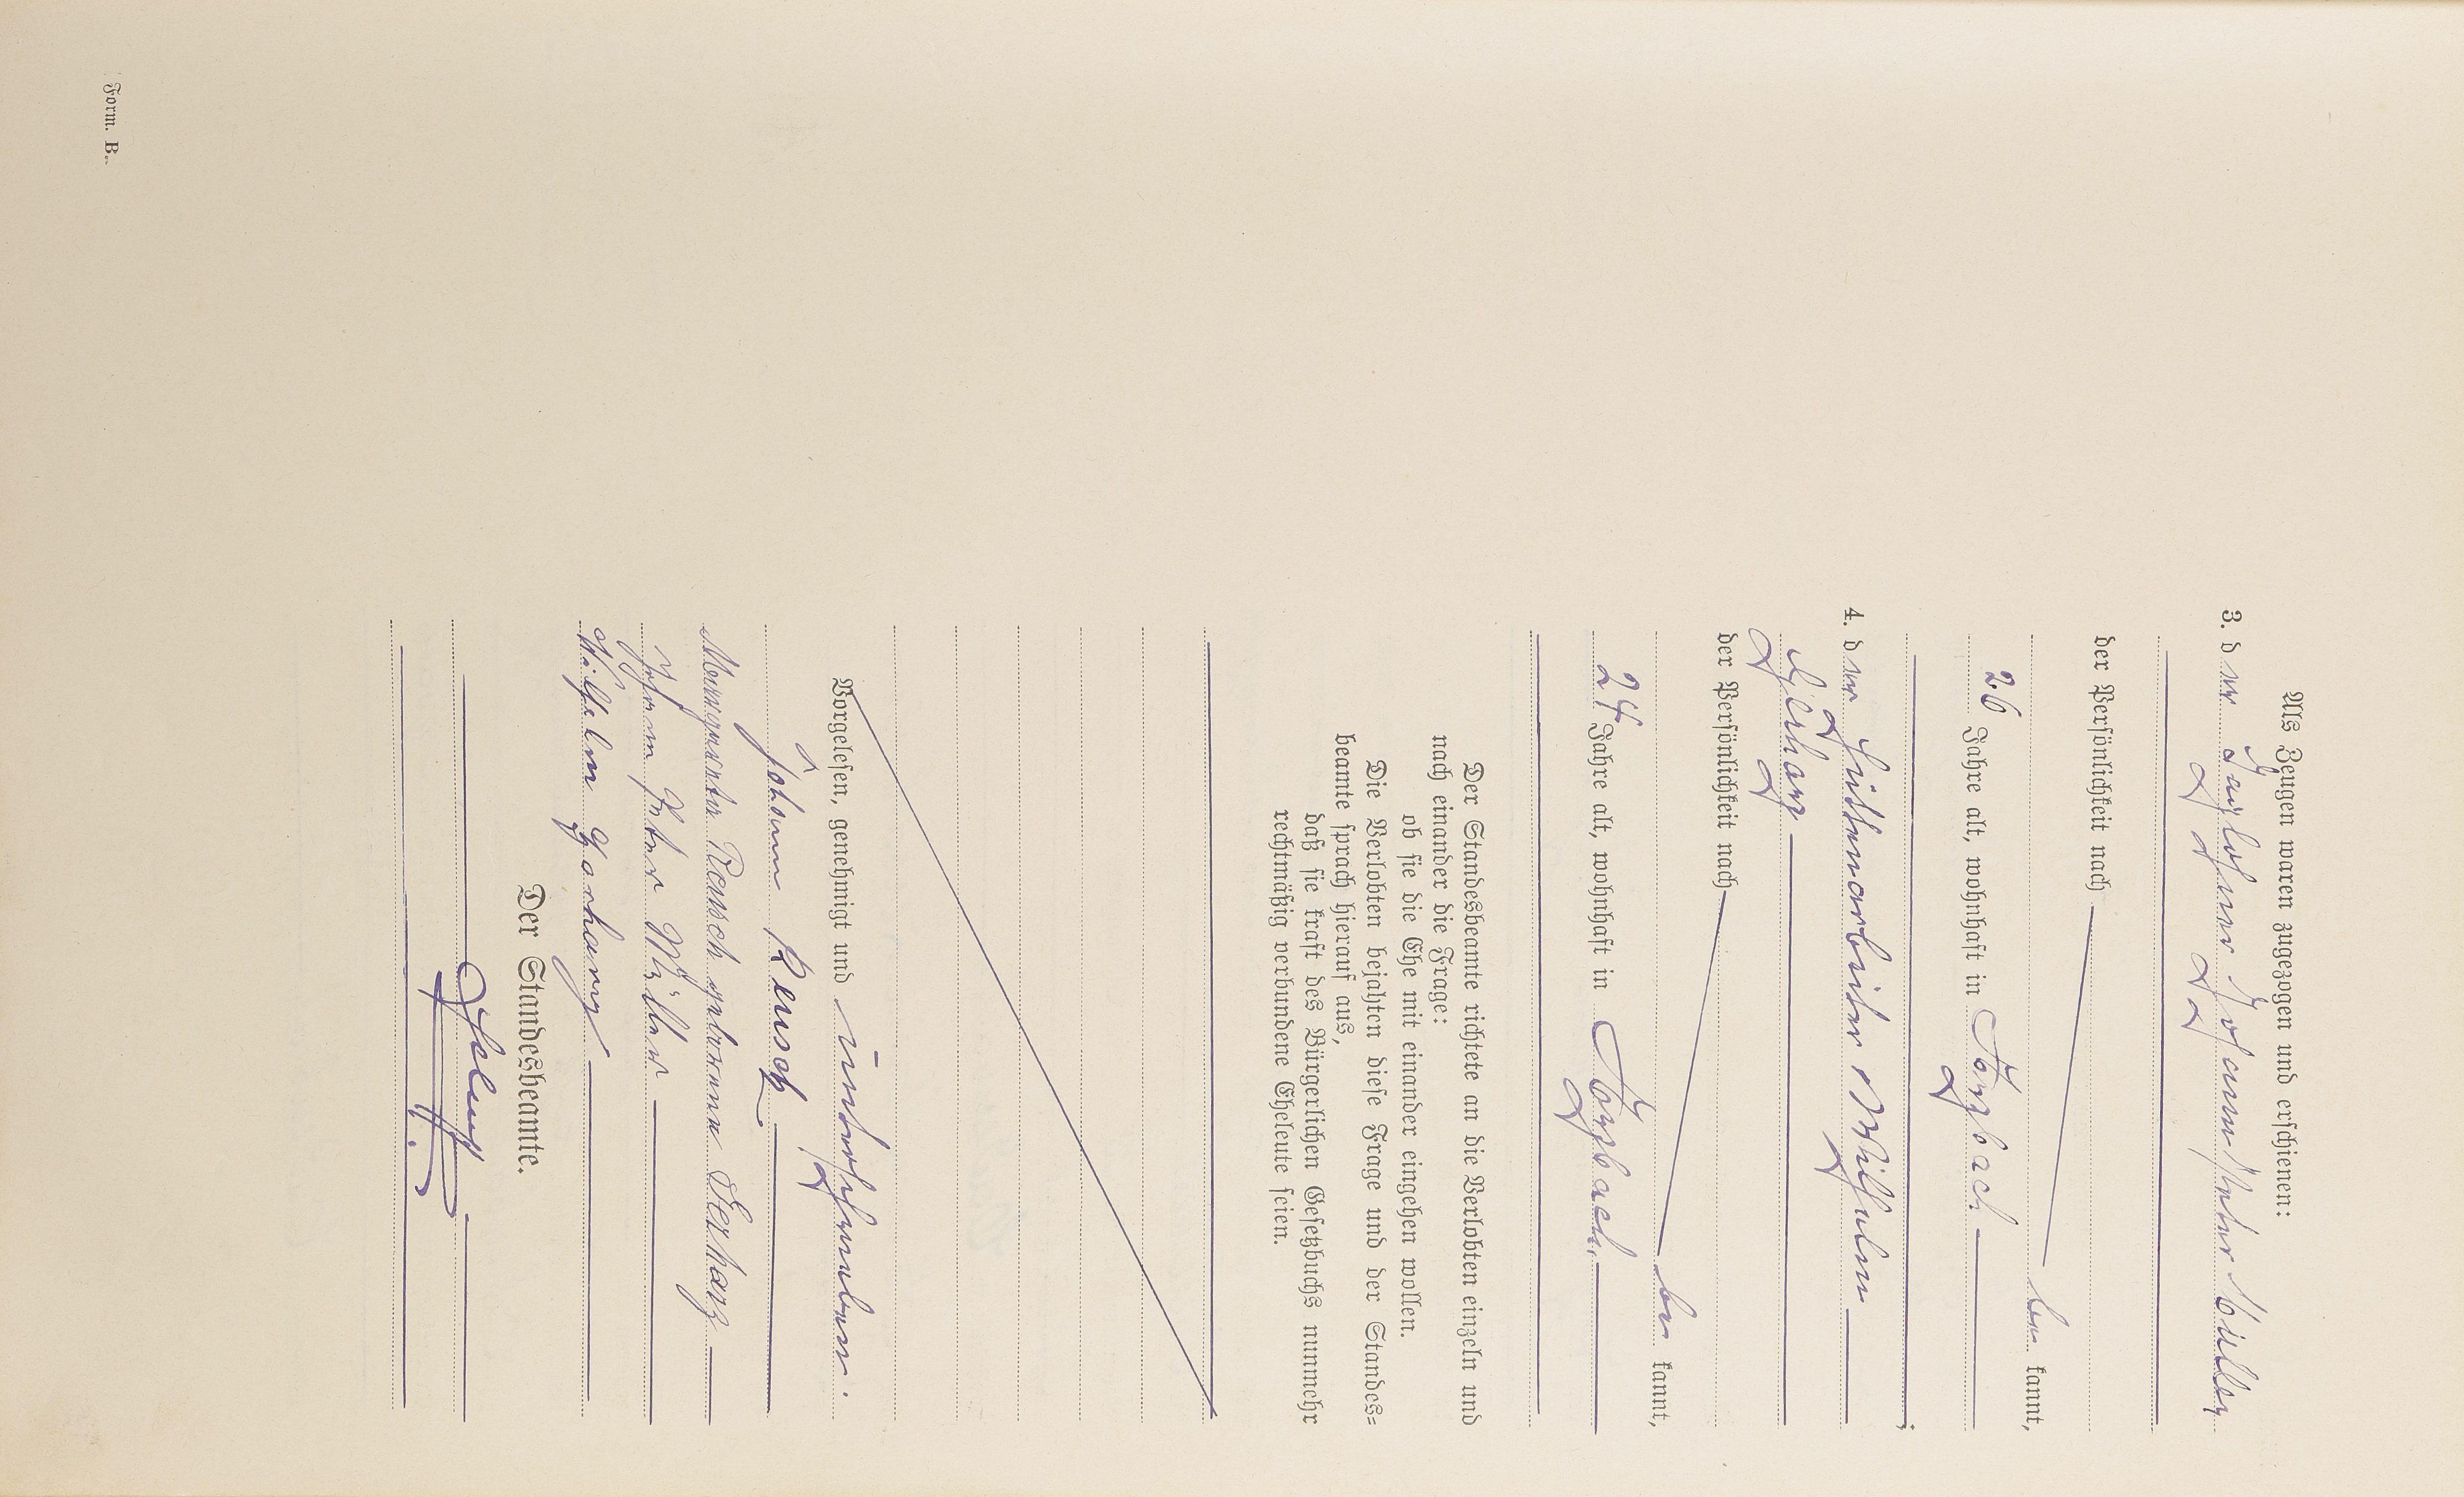 Als Zeugen waren zugezogen und erschienen:
3. der Taglöhner Johann Peter Müller
der Persönlichkeit nach
be kannt,
26 Jahre alt, wohnhaft in
4. der Hüttenarbeiter Wilhelm
der Persönlichkeit nach
be kannt,
24 Jahre alt, wohnhaft in
Der Standesbeamte richtete an die Verlobten einzeln und
nach einander die Frage:
ob sie die Ehe mit einander eingehen wollen.
Die Verlobten bejahten diese Frage und der Standes=
beamte sprach hierauf aus,
daß sie kraft des Bürgerlichen Gesetzbuchs nunmehr
rechtmäßig verbundene Eheleute seien.
Vorgelesen, genehmigt und unterschrieben.
Johann Reusch
Margareta Reusch geborene
Johann Peter Müller
Wilhelm
Der Standesbeamte.
Form. B.